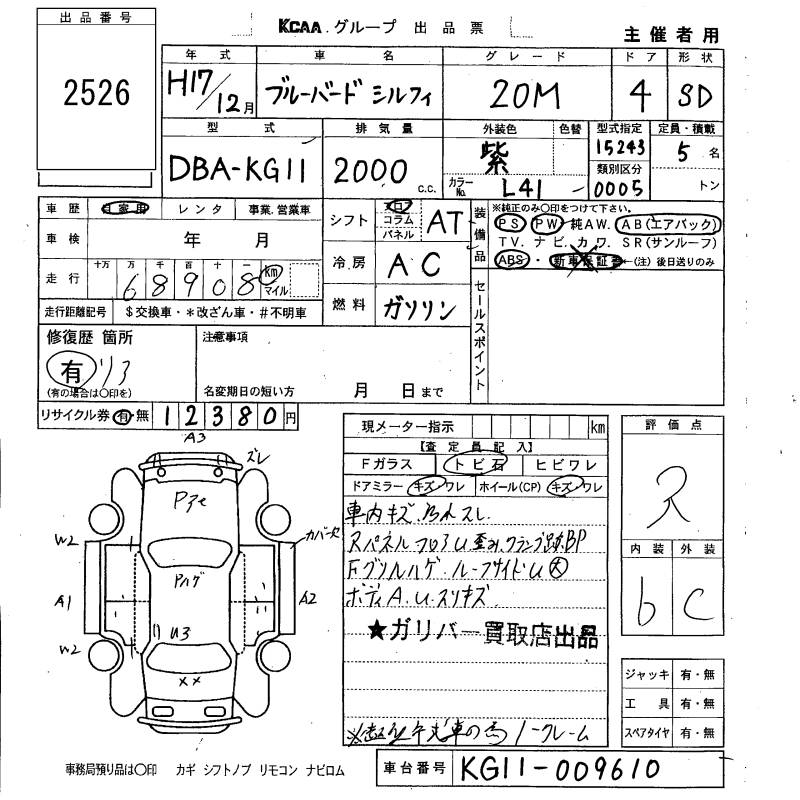 出品番号
2526
KCAA.グループ 出品票
主催者用
年式 車名 グレード ドア 形状
H17/12月 ブルーバード シルフィ 20M 4 SD
型式 排気量 外装色 色替 型式指定 定員・積載
DBA-KG11 2000 c.c. 紫 15243 5名
カラーNo. L41 類別区分 0005 トン
車歴 自家用 レンタ 事業.営業車
車検 年 月
走行 十万 万 千 百 十 一 km マイル
68908
走行距離記号 $交換車・*改ざん車・#不明車
シフト コラム パネル AT
冷房 AC
燃料 ガソリン
装備品
※純正のみ〇印をつけて下さい。
PS PW 純AW. AB(エアバック)
TV. ナビ. カワ. SR(サンルーフ)
ABS・新車保証書←(注)後日送りのみ
セールスポイント
修復歴 箇所
有 リア
(有の場合は〇印を)
注意事項
名変期日の短い方 月 日まで
リサイクル券 有・無 12380円
現メーター指示 km
【査定員記入】
Fガラス トビ石 ヒビワレ
ドアミラー キズ・ワレ ホイール(CP) キズ・ワレ
車内キズ.
ボディA.U.スリキズ
★ガリバー買取店出品
ノークレーム
評価点
内装 外装
b C
ジャッキ 有・無
工具 有・無
スペアタイヤ 有・無
A3
ズレ
W2
カバー欠
Pハゲ
A1
A2
U3
W2
××
事務局預り品は〇印 カギ シフトノブ リモコン ナビロム
車台番号 KG11-009610